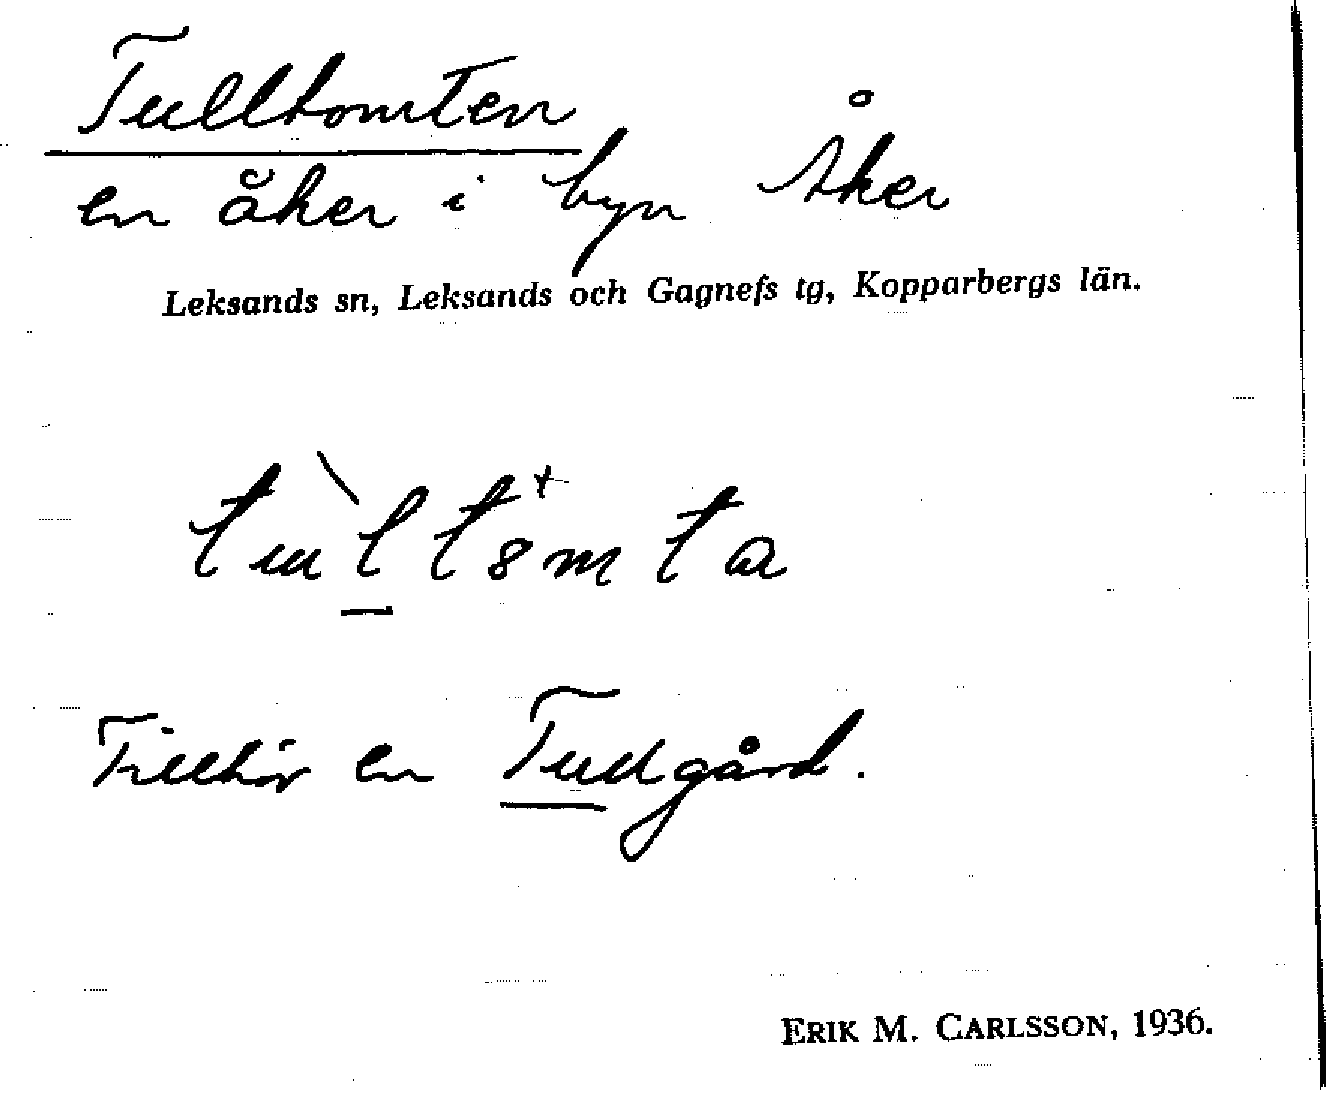 Tulltomten
en åker i byn Åker
Leksands sn, Leksands och Gagnefs tg, Kopparbergs län.
Tillhör en Tullgård.
ERIK M. CARLSSON, 1936.